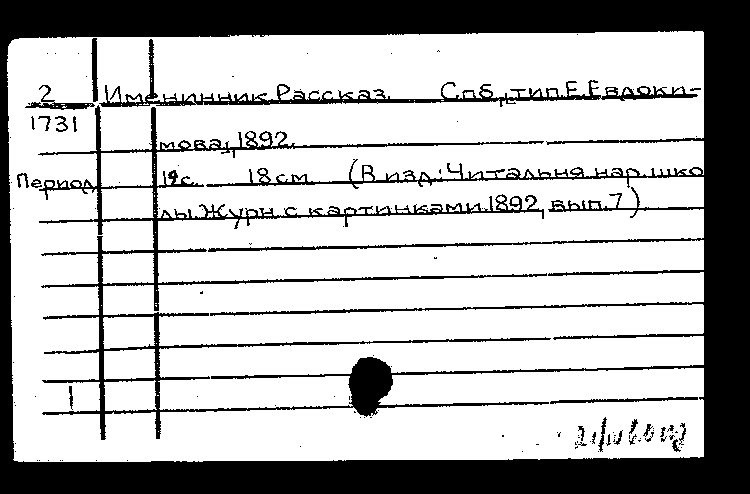 2 Именинник. Рассказ. Спб., тип. Е. Евдоки-
1731
мова, 1892.
Период. 19с. 18см. (В изд.: Читальня нар. шко
лы. Журн. с картинками. 1892, вып. 7).
1